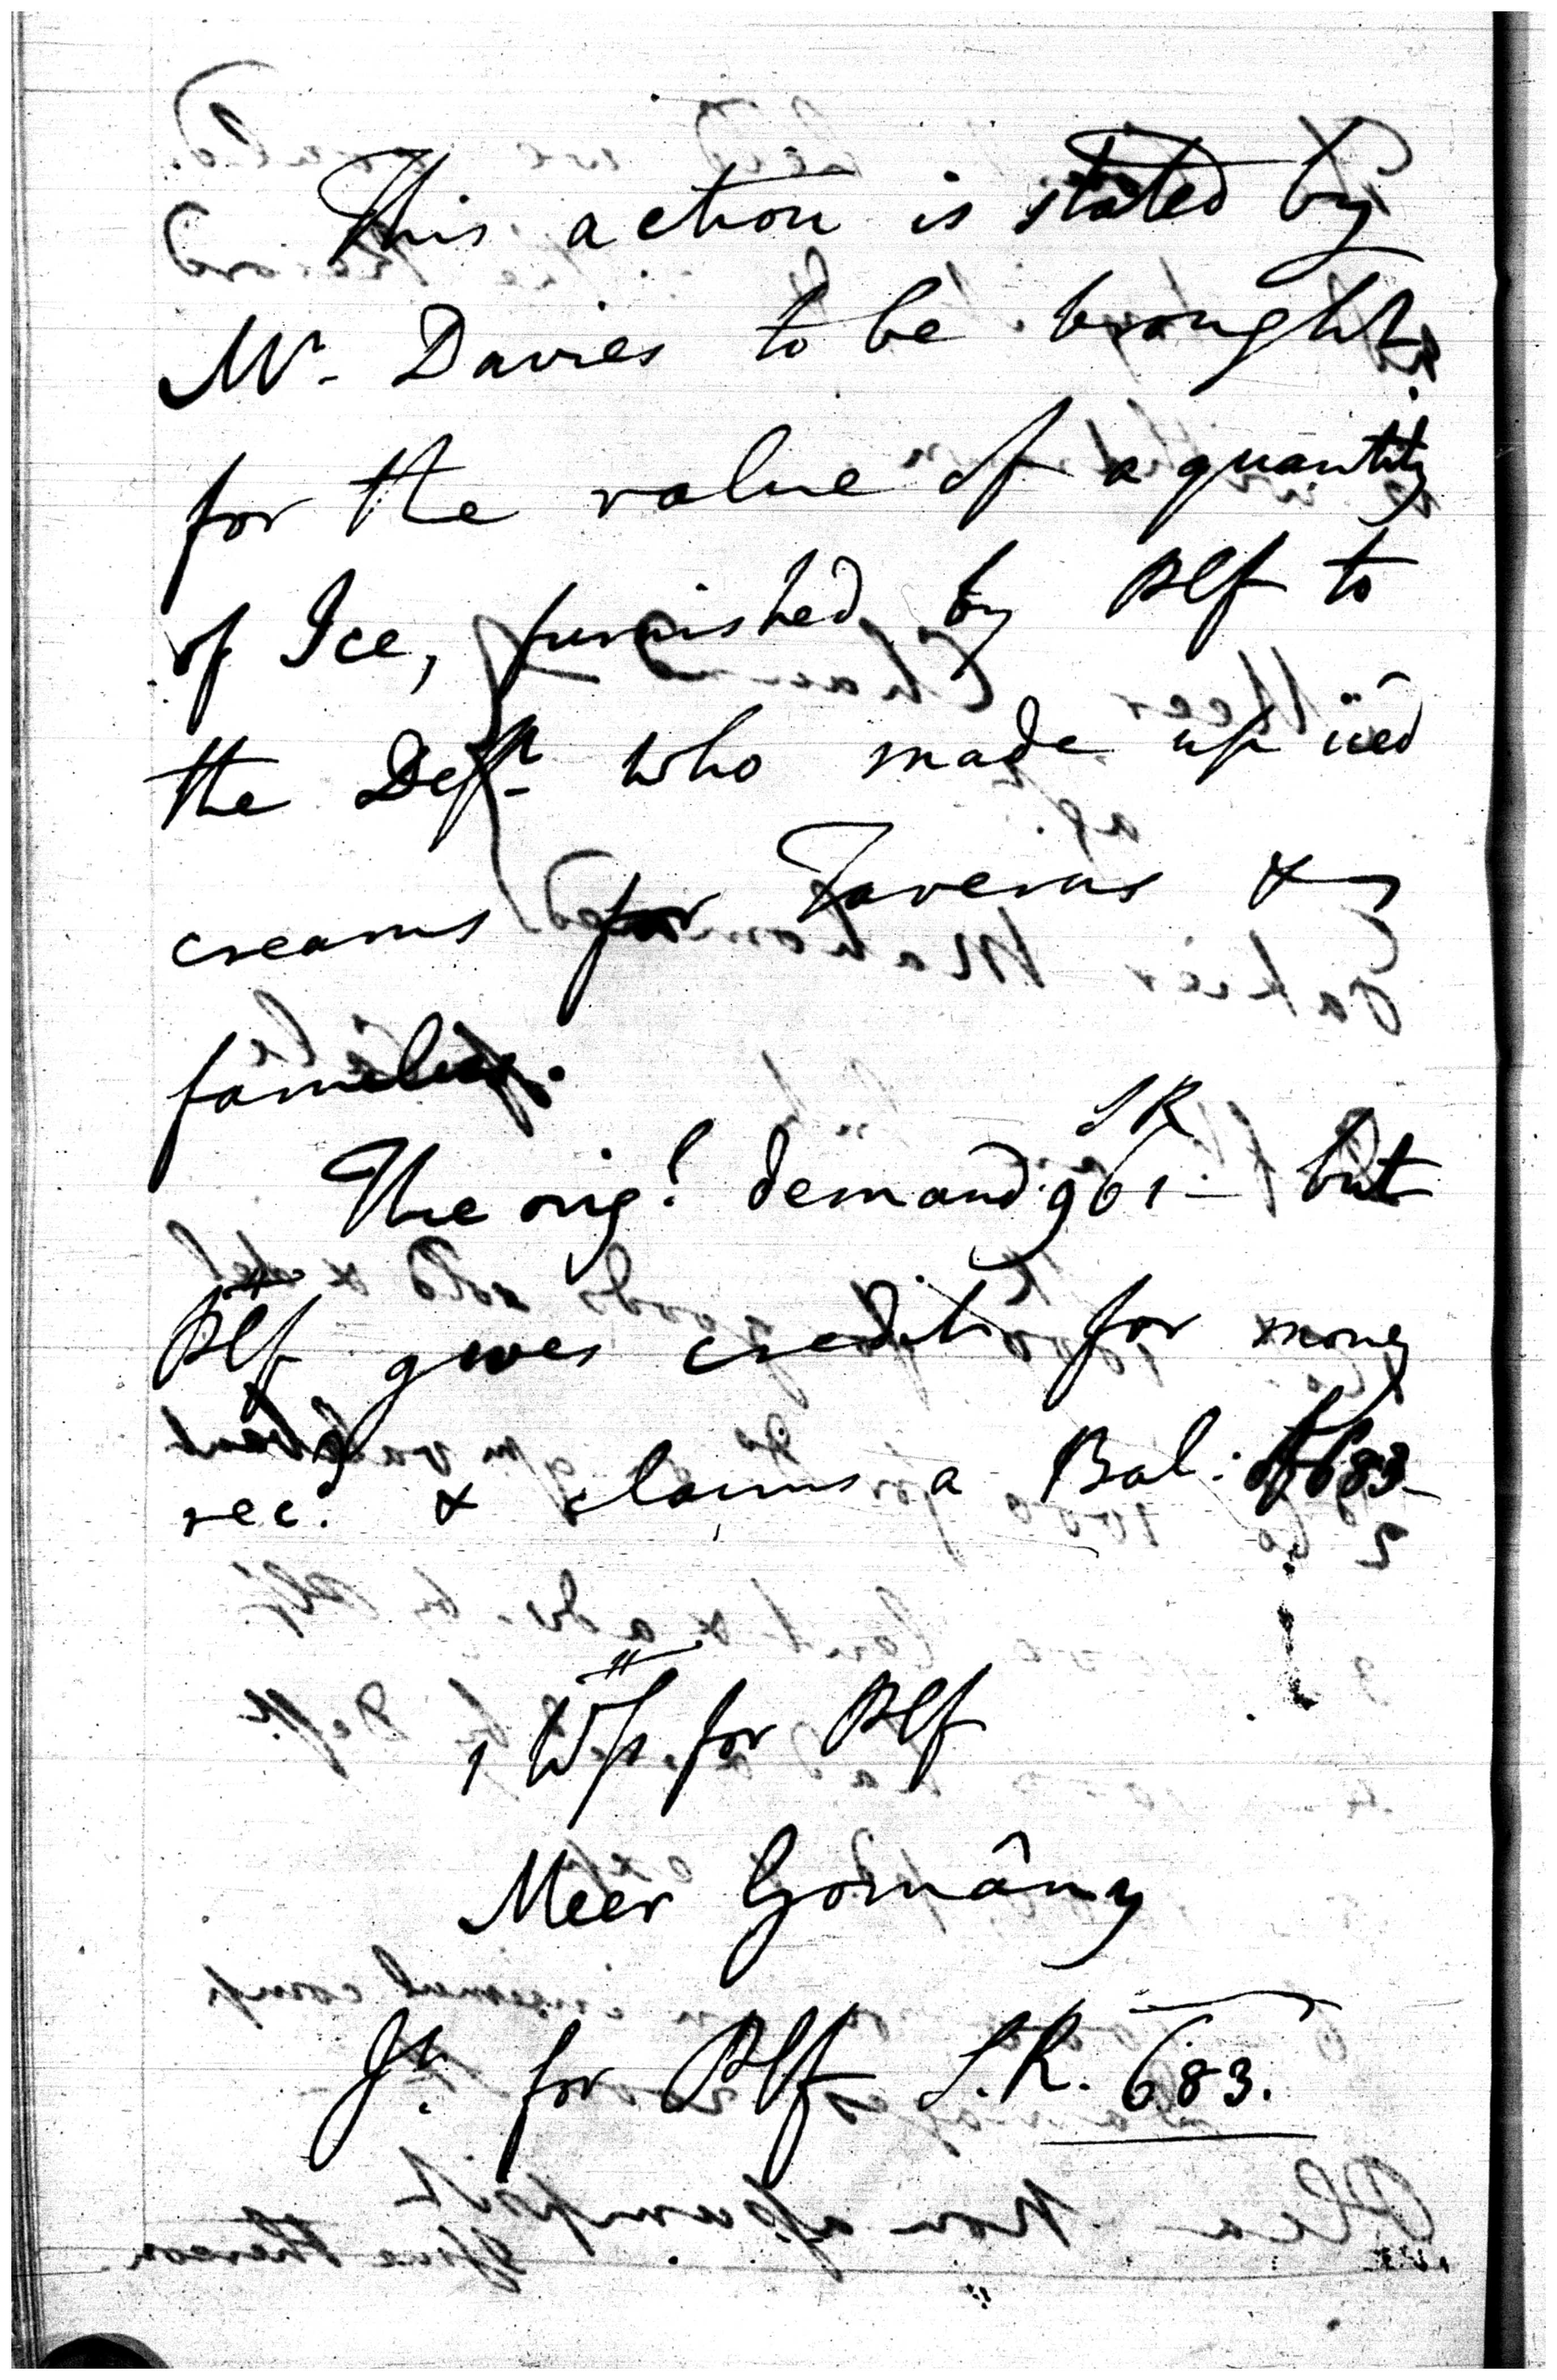 This action is stated by
Mr. Davies to be brought
for the value of a quantity
of Ice, furnished by Plf to
the Deft. who made up iced
creams for Taverns &
families.
The orig.l demand SR 961 – but
Plf gives credit for money
rec.d & claims a Bal: of 683–
1 Ws. for Plf
Meer Gomâny
Jt. for Plf S.R. 683.